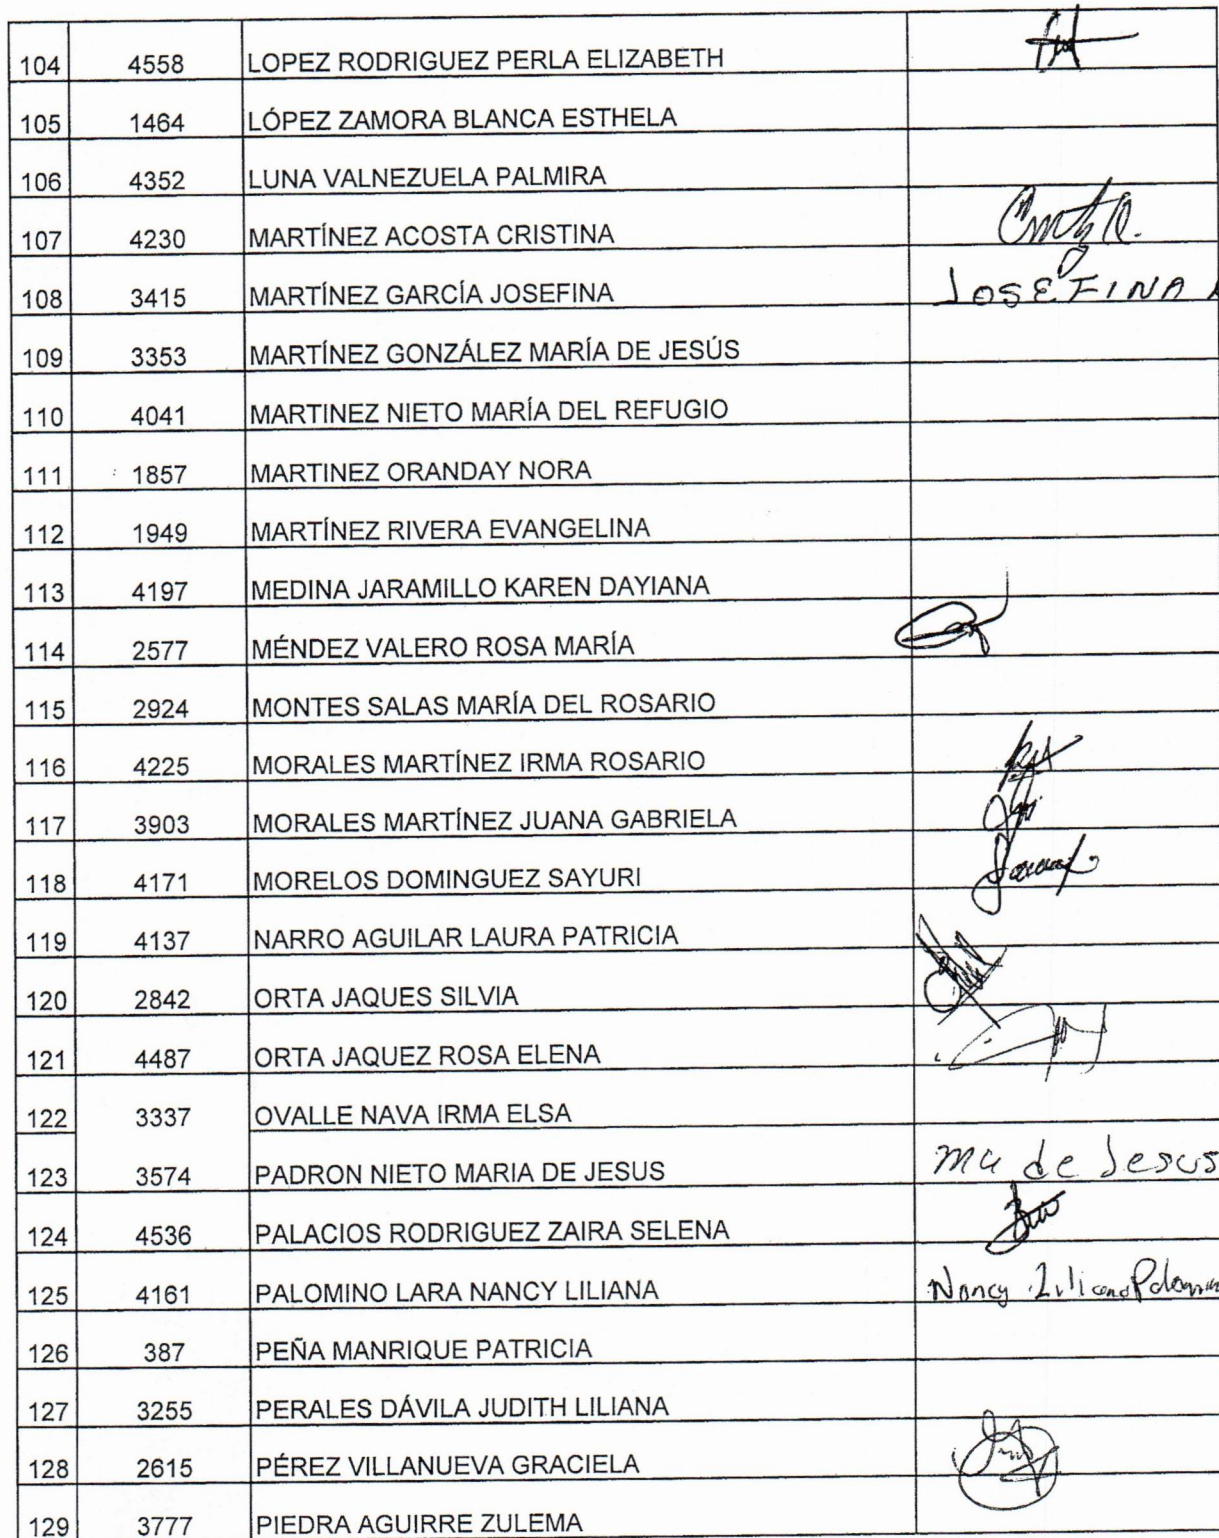 104 4558 LOPEZ RODRIGUEZ PERLA ELIZABETH
105 1464 LÓPEZ ZAMORA BLANCA ESTHELA
106 4352 LUNA VALNEZUELA PALMIRA
107 4230 MARTÍNEZ ACOSTA CRISTINA
108 3415 MARTÍNEZ GARCÍA JOSEFINA JOSEFINA
109 3353 MARTÍNEZ GONZÁLEZ MARÍA DE JESÚS
110 4041 MARTINEZ NIETO MARÍA DEL REFUGIO
111 1857 MARTINEZ ORANDAY NORA
112 1949 MARTÍNEZ RIVERA EVANGELINA
113 4197 MEDINA JARAMILLO KAREN DAYIANA
114 2577 MÉNDEZ VALERO ROSA MARÍA
115 2924 MONTES SALAS MARÍA DEL ROSARIO
116 4225 MORALES MARTÍNEZ IRMA ROSARIO
117 3903 MORALES MARTÍNEZ JUANA GABRIELA
118 4171 MORELOS DOMINGUEZ SAYURI
119 4137 NARRO AGUILAR LAURA PATRICIA
120 2842 ORTA JAQUES SILVIA
121 4487 ORTA JAQUEZ ROSA ELENA
122 3337 OVALLE NAVA IRMA ELSA
123 3574 PADRON NIETO MARIA DE JESUS Ma de Jesus
124 4536 PALACIOS RODRIGUEZ ZAIRA SELENA
125 4161 PALOMINO LARA NANCY LILIANA Nancy Liliana
126 387 PEÑA MANRIQUE PATRICIA
127 3255 PERALES DÁVILA JUDITH LILIANA
128 2615 PÉREZ VILLANUEVA GRACIELA
129 3777 PIEDRA AGUIRRE ZULEMA